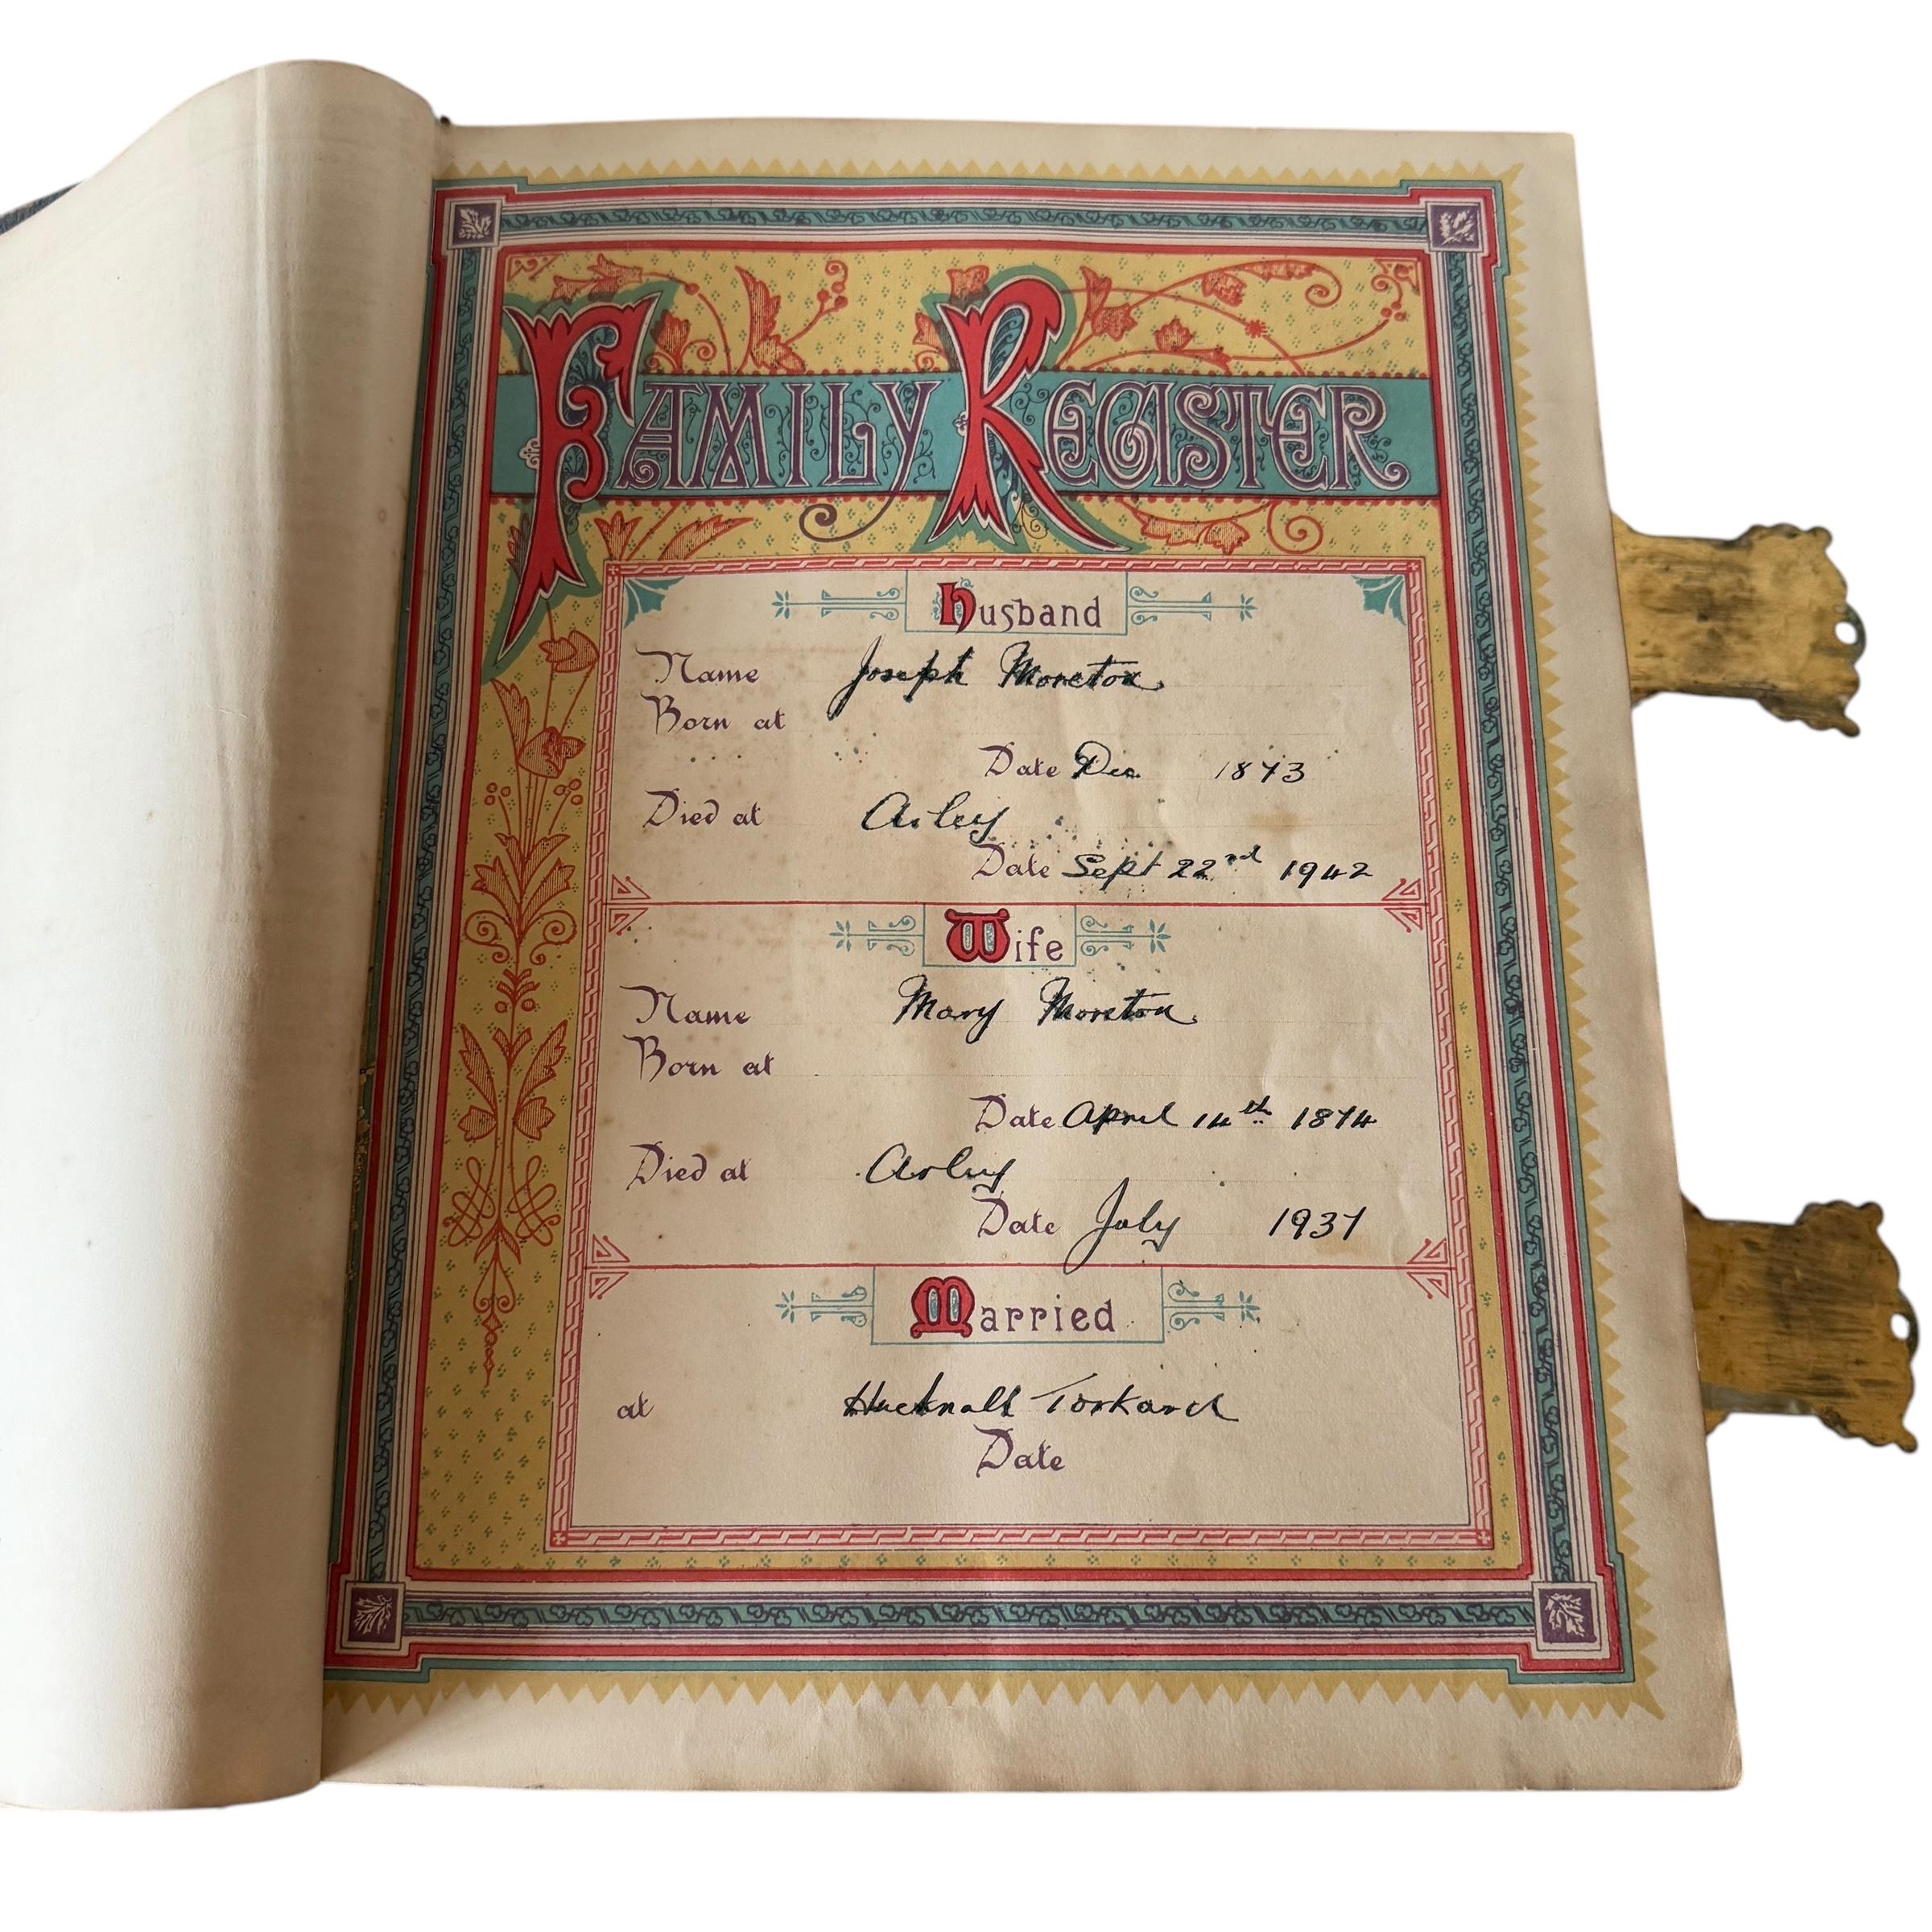 FAMILY REGISTER
Husband
Name Joseph Moreton
Born at
Date Dec 1873
Died at Arley
Date Sept 22nd 1942
Wife
Name Mary Moreton
Born at
Date April 14th 1874
Died at Arley
Date July 1937
Married
at Hucknall Torkard
Date